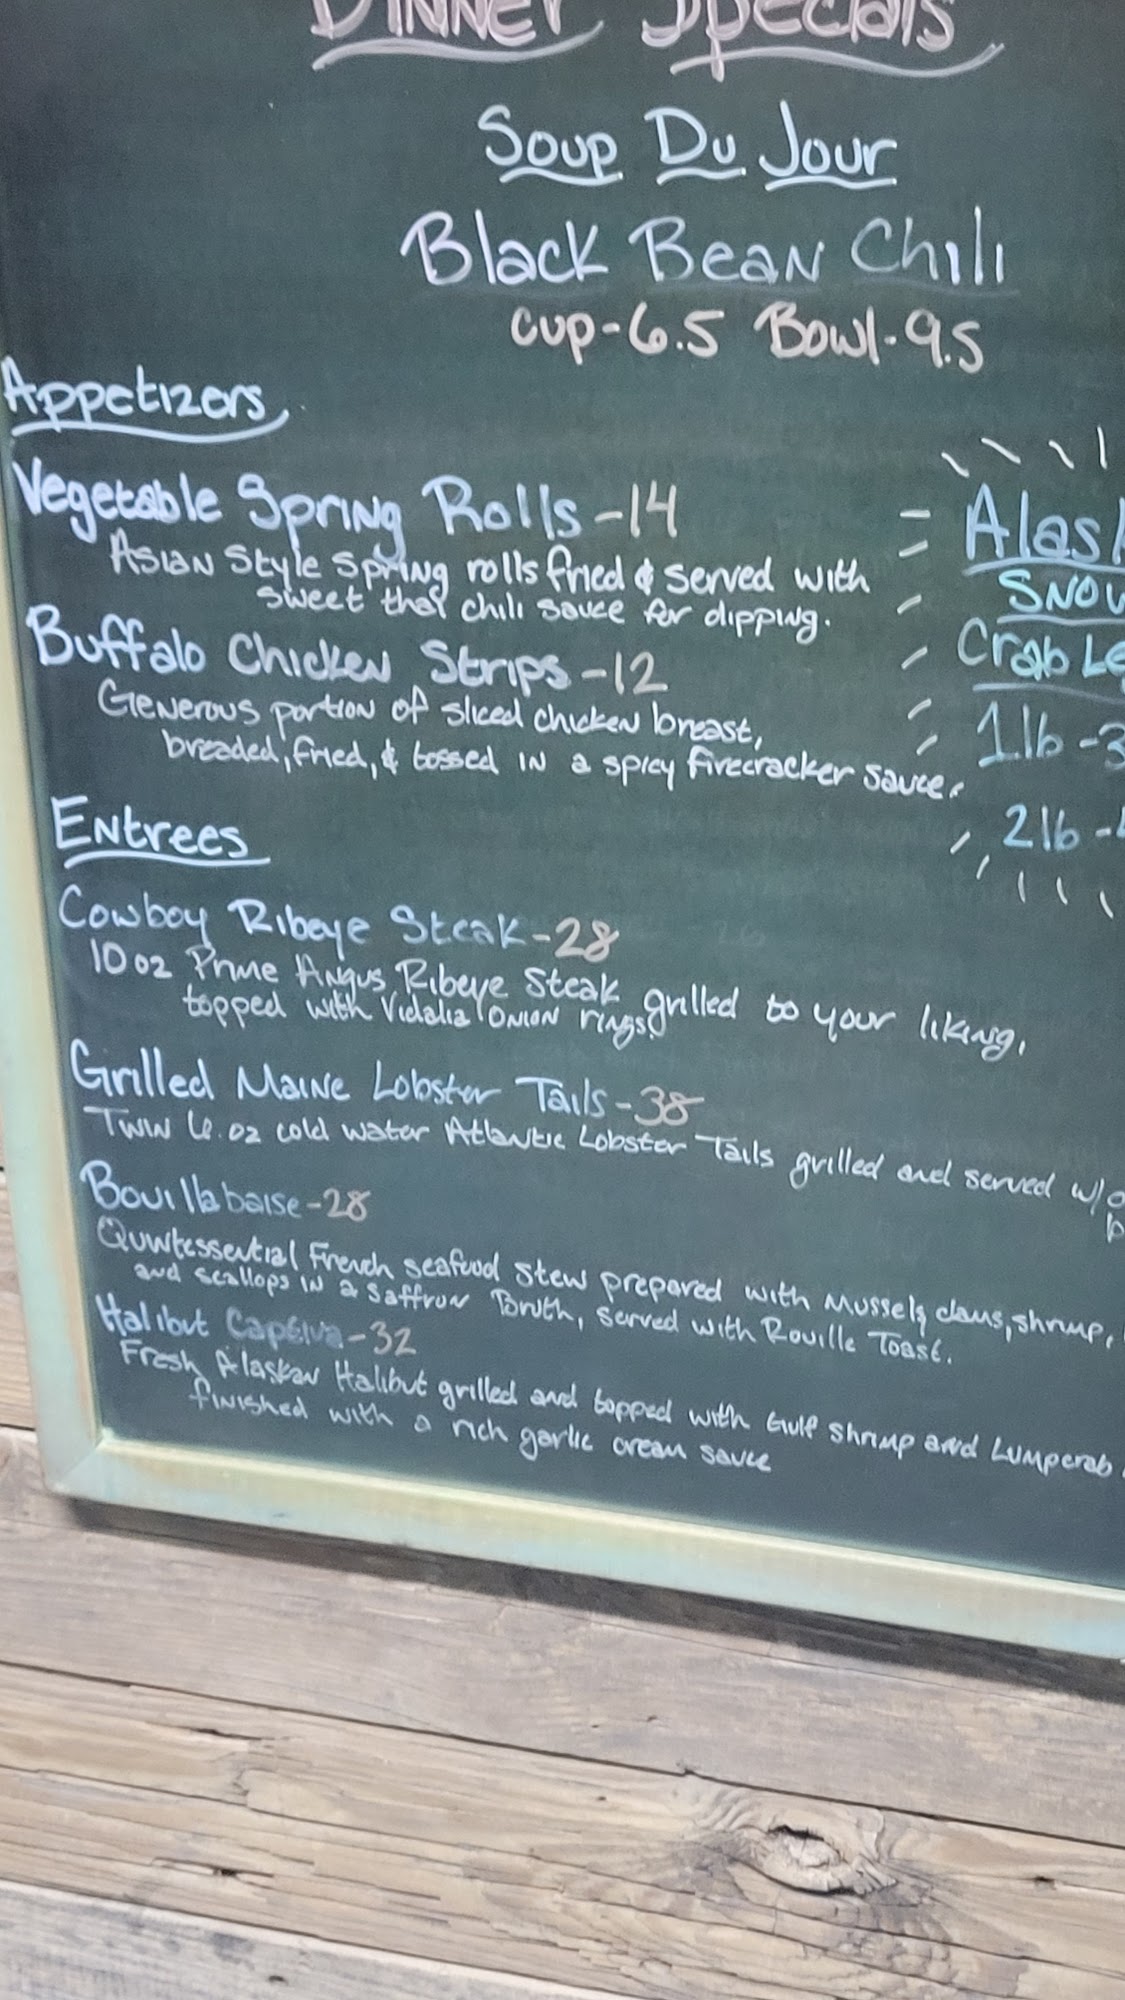 Dinner Specials
Soup Du Jour
Black Bean Chili
cup-6.5 Bowl-9.5
Appetizers
Vegetable Spring Rolls-14
Asian Style Spring rolls fried & served with
sweet thai chili sauce for dipping.
Buffalo Chicken Strips-12
Generous portion of sliced chicken breast,
breaded, fried, & tossed in a spicy firecracker sauce.
Alask
Snow
Crab Le
1lb-3
2lb-
Entrees
Cowboy Ribeye Steak-28
10oz Prime Angus Ribeye Steak grilled to your liking,
topped with Vidalia onion rings.
Grilled Maine Lobster Tails-38
Twin 6.oz cold water Atlantic Lobster Tails grilled and served w/
Bouillabaise-28
Quintessential French seafood stew prepared with Mussels, clams, shrimp,
and scallops in a Saffron Broth, served with Rouille Toast.
Halibut Captiva-32
Fresh Alaskan Halibut grilled and topped with Gulf Shrimp and Lumpcrab
finished with a rich garlic cream sauce